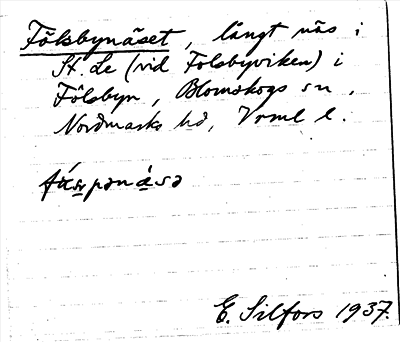 Fölsbynäset, långt näs i
St. Le (vid Folsbyviken) i
Fölsbyn, Blomskogs sn,
Nordmarks hd, Vrml l.
E. Silfors 1937.